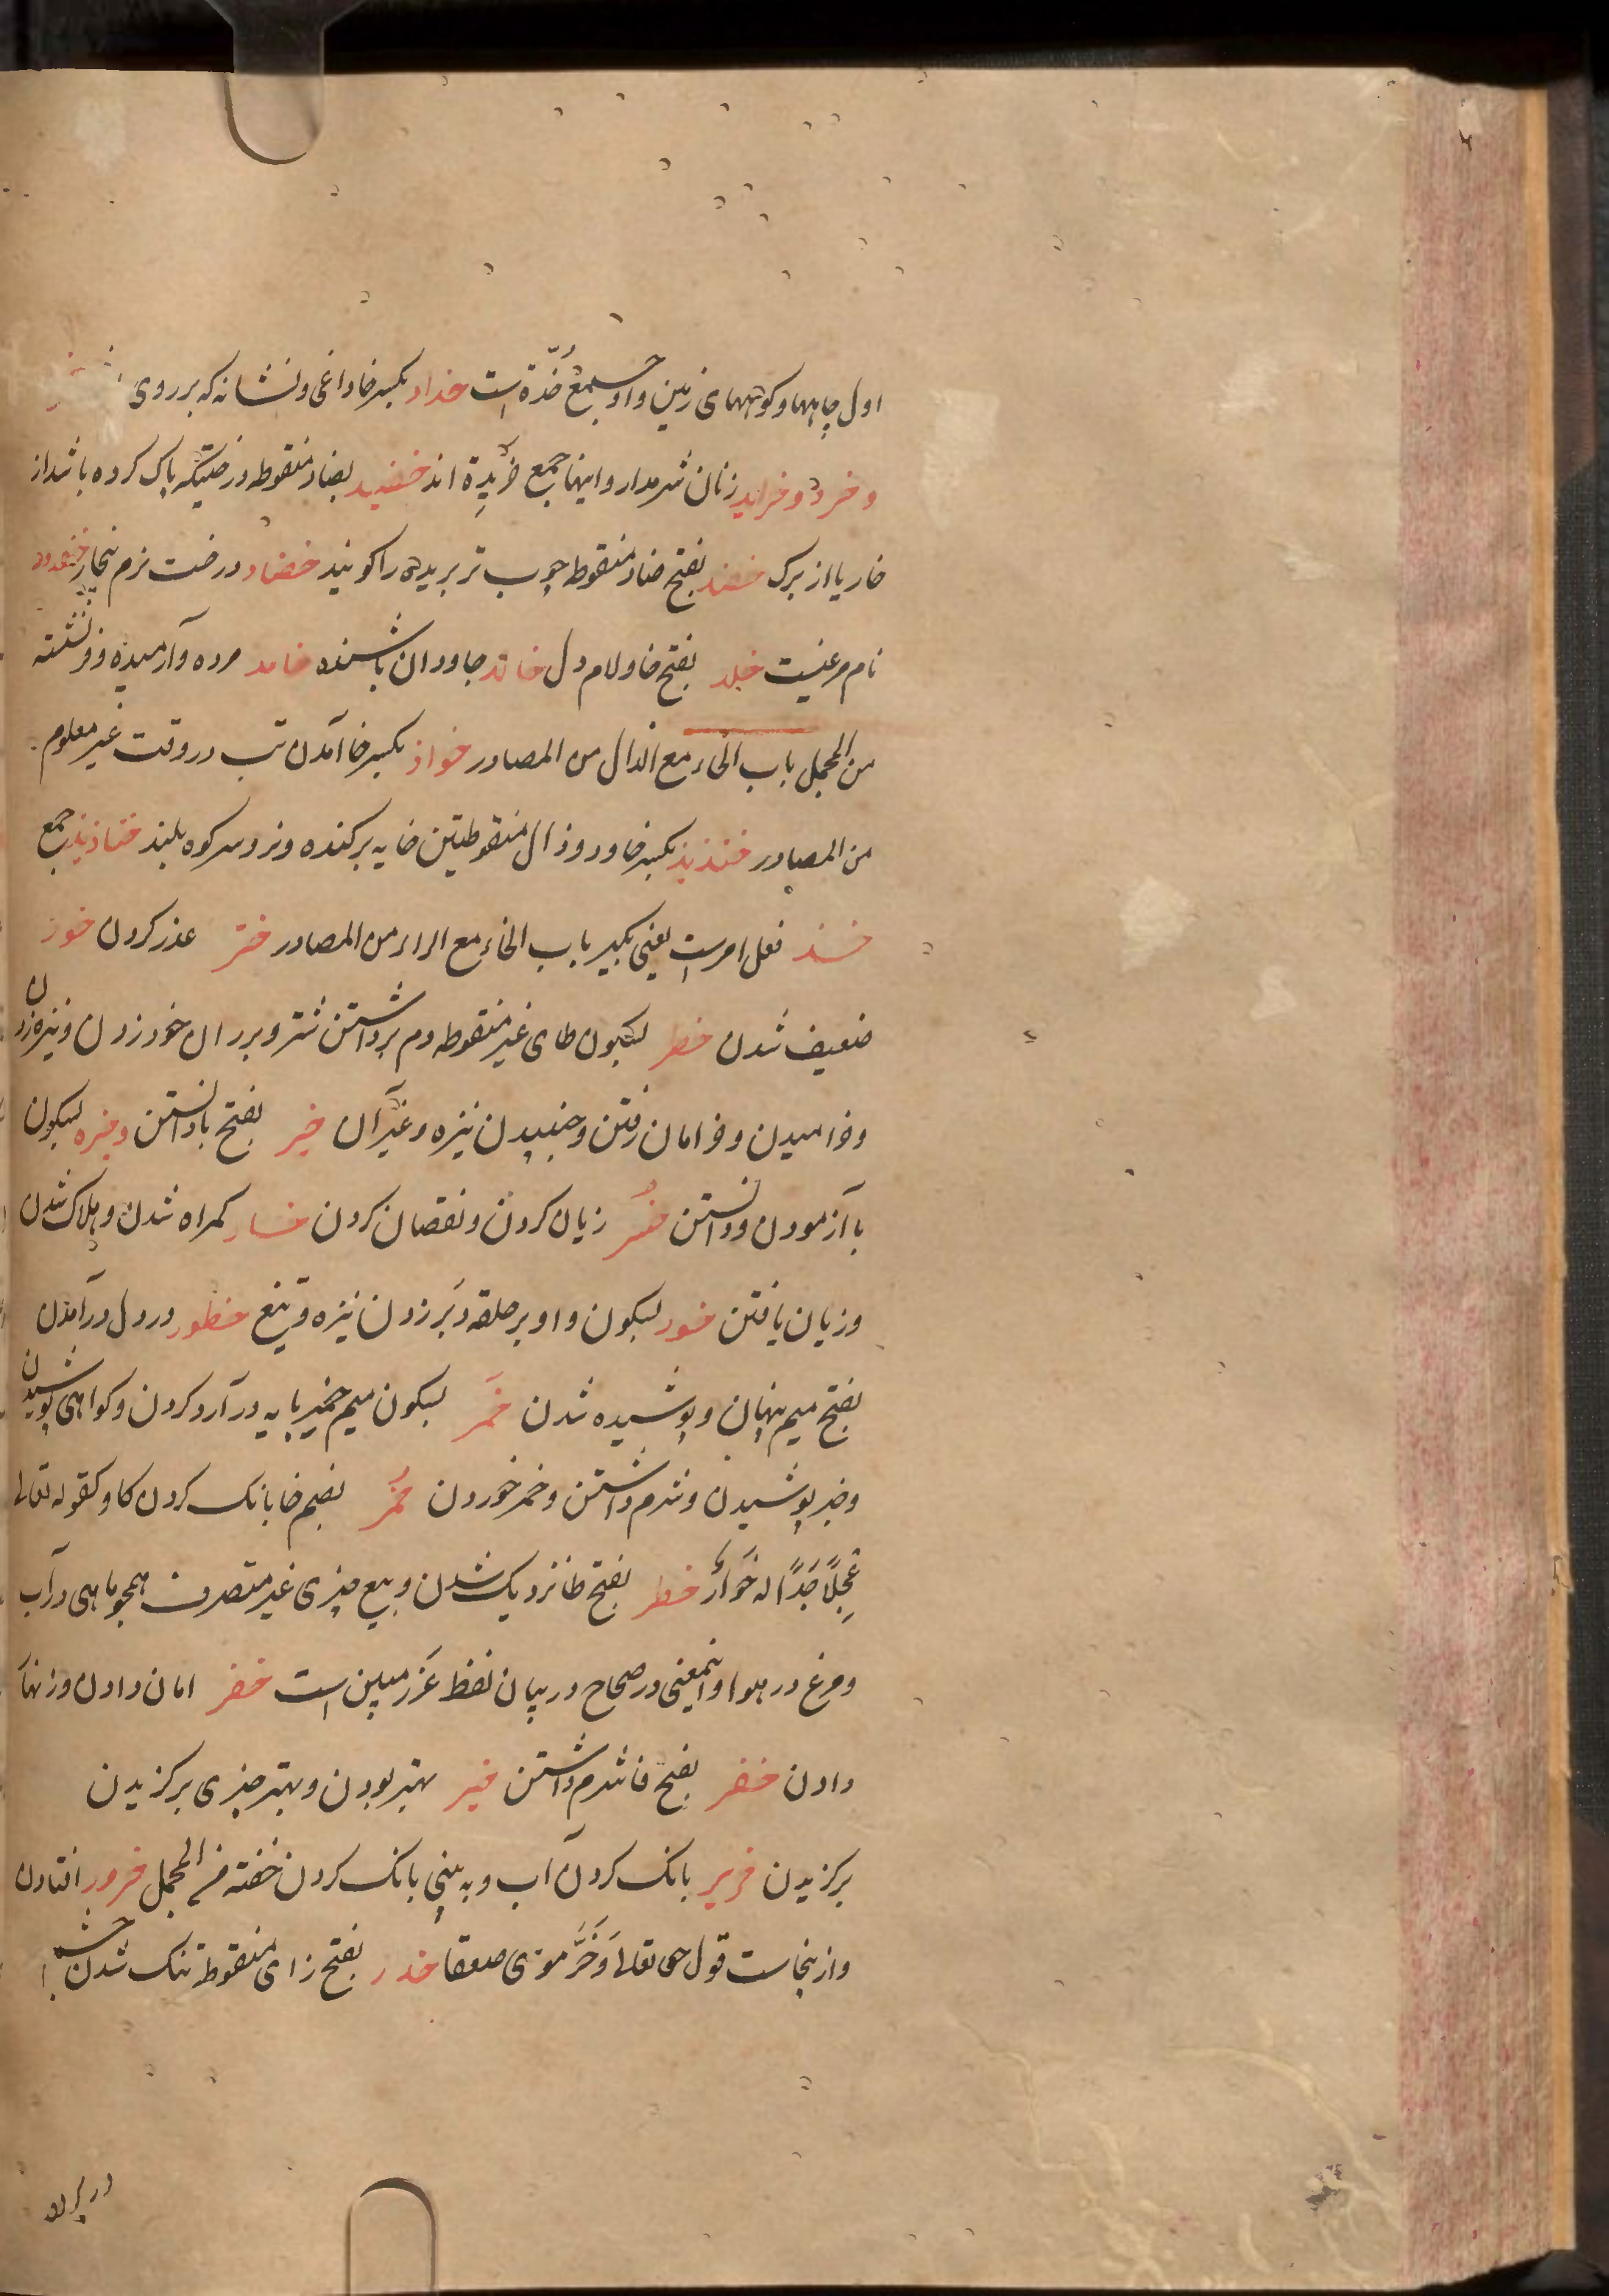 اول چاهها و کوههای زمین و او جمع خُدّة است خداد بکسر خا داغی و نشانه که بر روی
و خرد و خراید زنان شرمدار و اینها جمع خریدة اند خضید بضاد منقوطه درختیکه پاک کرده باشد از
خار یا از برگ خضد بفتح ضاد منقوطه چوب تر بریده را گویند خضاد درخت نرم بیخار خفدود
نام مرغیست خلد بفتح خا و لام دل خالد جاودان باشنده خامد مرده و آرمیده و فرو نشسته
من المجمل باب الخاء مع الذال من المصادر خواذ بکسر خا آمدن تب در وقت غیر معلوم
من المصادر خنذیذ بکسر خا و دو ذال منقوطتین خایه برکنده و نر و سر کوه بلند خناذیذ جمع
خذ فعل امرست یعنی بگیر باب الخاء مع الراء من المصادر ختر غدر کردن خور
ضعیف شدن خطر بسکون طای غیر منقوطه دم برداشتن شتر و بر ران خود زدن و نیزه زدن
و خرامیدن و خرامان رفتن و جنبیدن نیزه و غیر آن خبر بفتح با دانستن و خبره بسکون
با آزمودن و دانستن خسر زیان کردن و نقصان کردن خسار گمراه شدن و هلاک شدن
و زیان یافتن خور بسکون واو بر حلقه دبر زدن نیزه و تیغ خطور در دل درآمدن
بفتح میم پنهان و پوشیده شدن خَمر بسکون میم خمیر مایه در آرد کردن و گواهی پوشیدن
و خبر پوشیدن و شرم داشتن و خمر خوردن خُمر بضم خا بانک کردن کاو کقوله تعالی
عِجلًا جَسَدًا له خُوارٌ خطر بفتح طا نزدیک شدن و بیع چیزی غیر متصرف همچو ماهی در آب
و مرغ در هوا و اینمعنی در صحاح در بیان لفظ غَرَر مبین است خفر امان دادن و زنهار
دادن خفر بفتح فا شرم داشتن خیر بهتر بودن و بهتر چیزی برکزیدن
برکزیدن خریر بانک کردن آب و به بینی بانک کردن خفته فی المجمل خرور افتادن
و ازینجاست قول حق تعالی وَخَرَّ موسی صعقا خزر بفتح زای منقوطه تنک شدن چشم